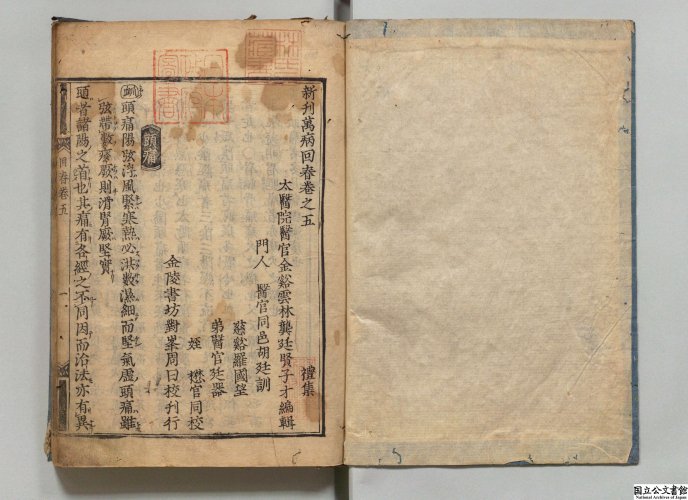 新刊萬病回春卷之五
禮集
太醫院醫官金谿雲林龔廷賢子才編輯
門人 醫官同邑胡廷訓
慈谿羅國望
弟醫官廷器
姪 懋官同校
金陵書坊對峯周曰校刊行
頭痛
頭痛陽弦浮風緊寒熱必洪數濕細而堅氣虛頭痛雖
弦帶數痰厥則滑腎厥堅實
頭者諸陽之首也其痛有各經之不同因而治法亦有異
回春卷五
一
国立公文書館
National Archives of Japan